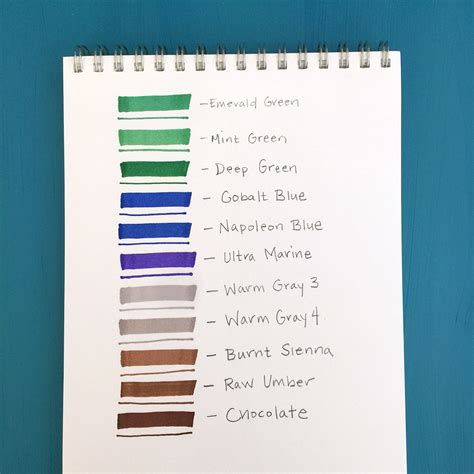 - Emerald Green
- Mint Green
- Deep Green
- Cobalt Blue
- Napoleon Blue
- Ultra Marine
- Warm Gray 3
- Warm Gray 4
- Burnt Sienna
- Raw Umber
- Chocolate